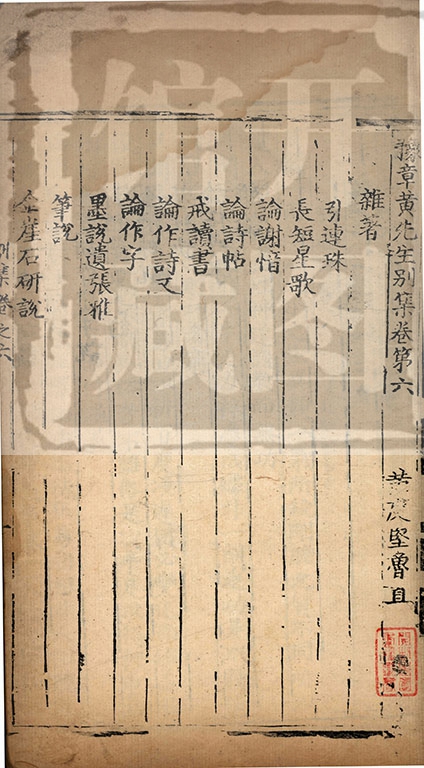 豫章黄先生别集卷第六
黄庭堅魯直
雜著
引連珠
長短星歌
論謝愔
論詩帖
戒讀書
論作詩文
論作字
墨說遺張雅
筆說
金崖石研說
别集卷之六